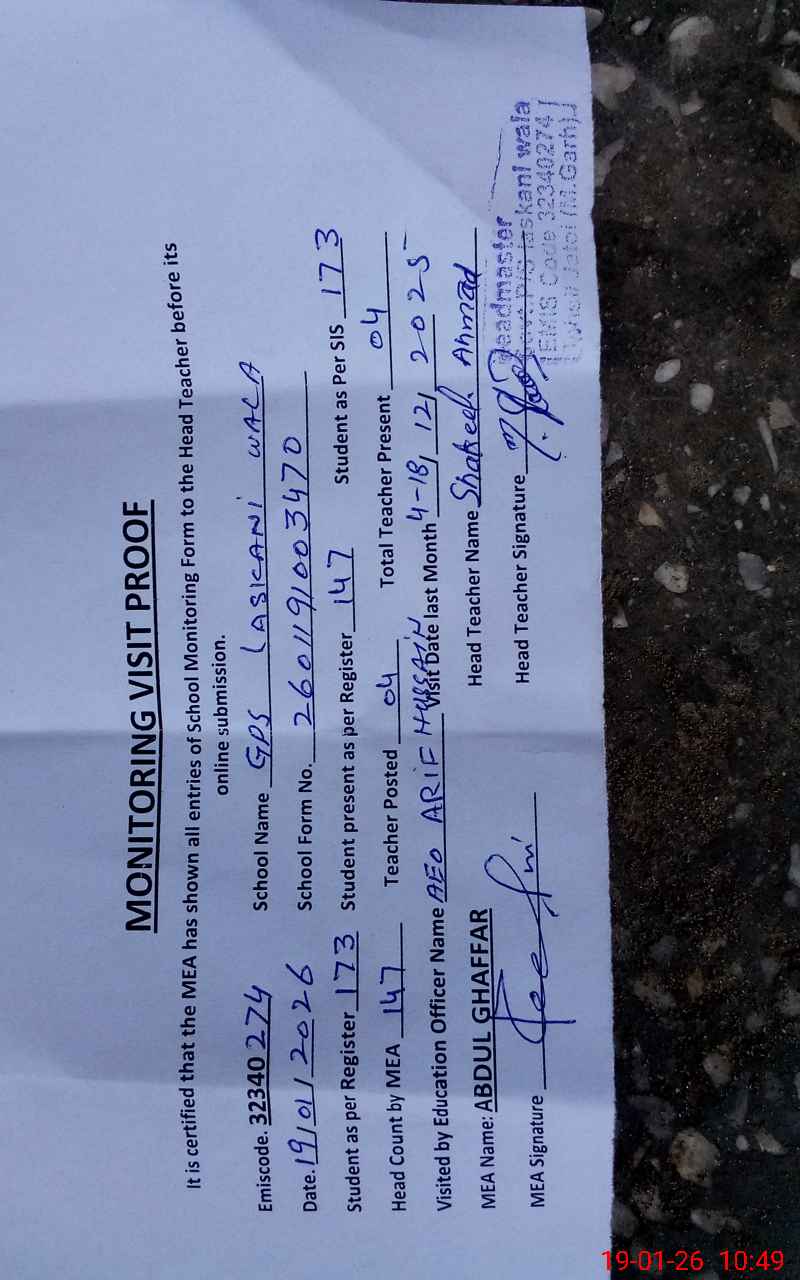 MONITORING VISIT PROOF
It is certified that the MEA has shown all entries of School Monitoring Form to the Head Teacher before its
online submission.
Emiscode. 32340274 School Name GPS LASKANI WALA
Date. 19/01/2026 School Form No. 260119/003470
Student as per Register 173 Student present as per Register 147 Student as Per SIS 173
Head Count by MEA 147 Teacher Posted 04 Total Teacher Present 04
Visited by Education Officer Name AEO ARIF HUSSAIN Visit Date last Month 4-18/12/2025
MEA Name: ABDUL GHAFFAR Head Teacher Name Shakeel Ahmad
MEA Signature Head Teacher Signature
Headmaster
laskani wala
EMIS Code 32340274
Jatoi (M.Garh)
19-01-26 10:49